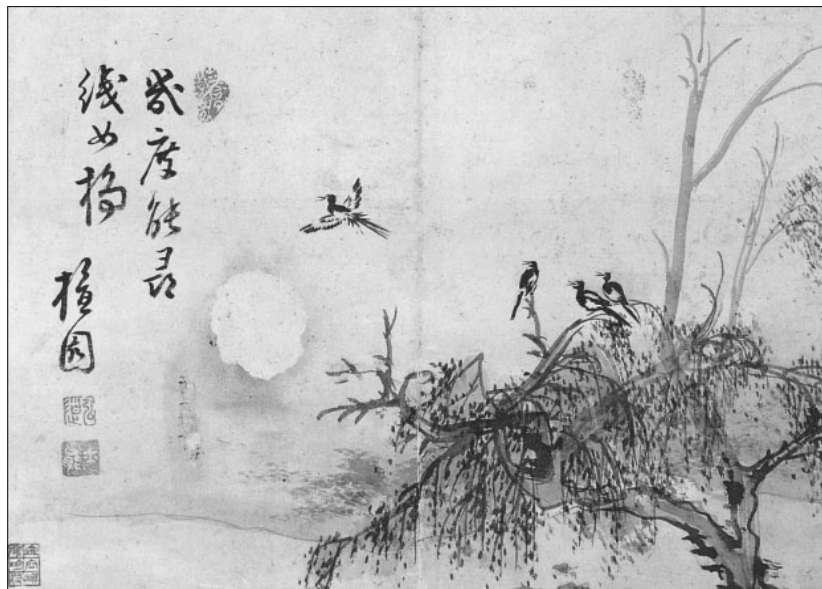 幾度能尋
織女橋
檀園